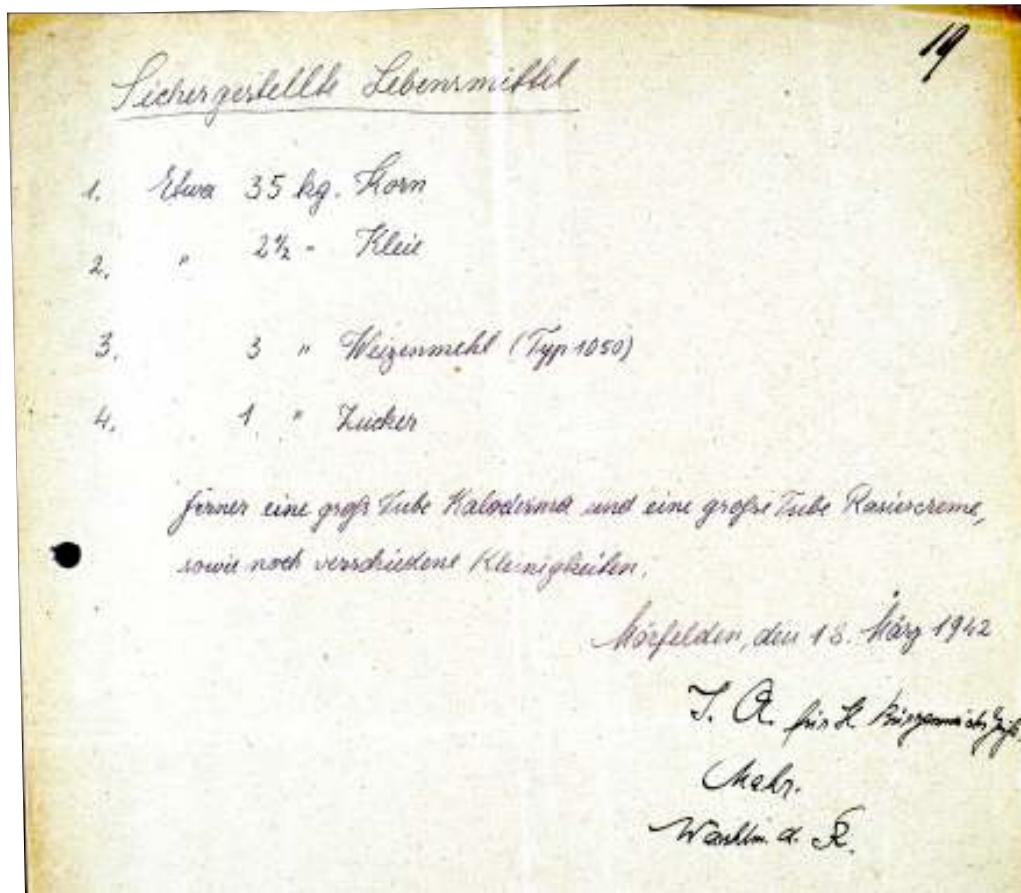 19
Sichergestellte Lebensmittel
1. Etwa 35 kg. Korn
2. " 2½ " Kleie
3. 3 " Weizenmehl (Typ 1050)
4. 1 " Zucker
ferner eine große Tube Kaloderma und eine große Tube Rasiercreme,
sowie noch verschiedene Kleinigkeiten.
Mörfelden, den 18. März 1942
I. A. für H. Bürgermeister
Mahr.
d. R.